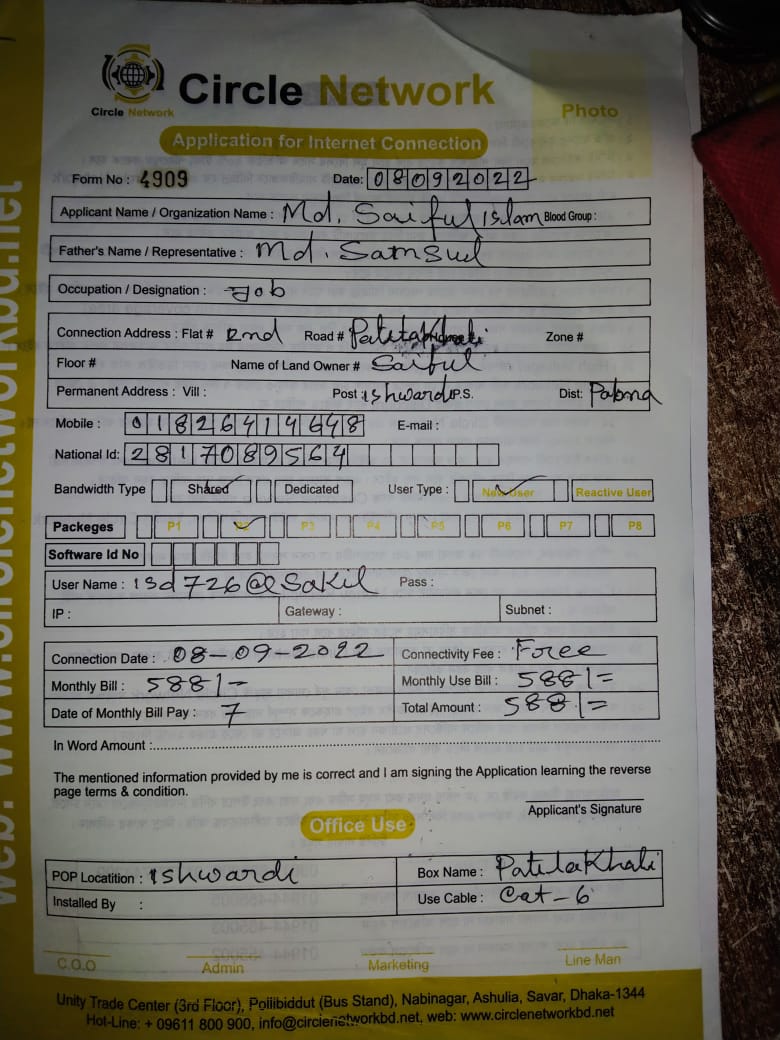 Circle Network
Circle Network
Photo
Application for Internet Connection
Form No : 4909 Date: 08092022
Applicant Name / Organization Name : Md. Saiful islam Blood Group :
Father's Name / Representative : Md. Samsul
Occupation / Designation : Job
Connection Address : Flat # 2nd Road # Zone #
Floor # Name of Land Owner # Saiful
Permanent Address : Vill : Post : ishwardi P.S. Dist: Pabna
Mobile : 01826414648 E-mail :
National Id: 2817089564
Bandwidth Type Shared Dedicated User Type : New User Reactive User
Packeges P1 P2 P3 P4 P5 P6 P7 P8
Software Id No
User Name : isd726@Sakil Pass :
IP : Gateway : Subnet :
Connection Date : 08-09-2022 Connectivity Fee : Free
Monthly Bill : 588/- Monthly Use Bill : 588/=
Date of Monthly Bill Pay : 7 Total Amount : 588/=
In Word Amount :
The mentioned information provided by me is correct and I am signing the Application learning the reverse
page terms & condition.
Applicant's Signature
Office Use
POP Locatition : ishwardi Box Name : PatilaKhali
Installed By : Use Cable : Cat-6
C.O.O Admin Marketing Line Man
Unity Trade Center (3rd Floor), Pollibiddut (Bus Stand), Nabinagar, Ashulia, Savar, Dhaka-1344
Hot-Line: + 09611 800 900, info@circlenetworkbd.net, web: www.circlenetworkbd.net
web: www.circlenetworkbd.net